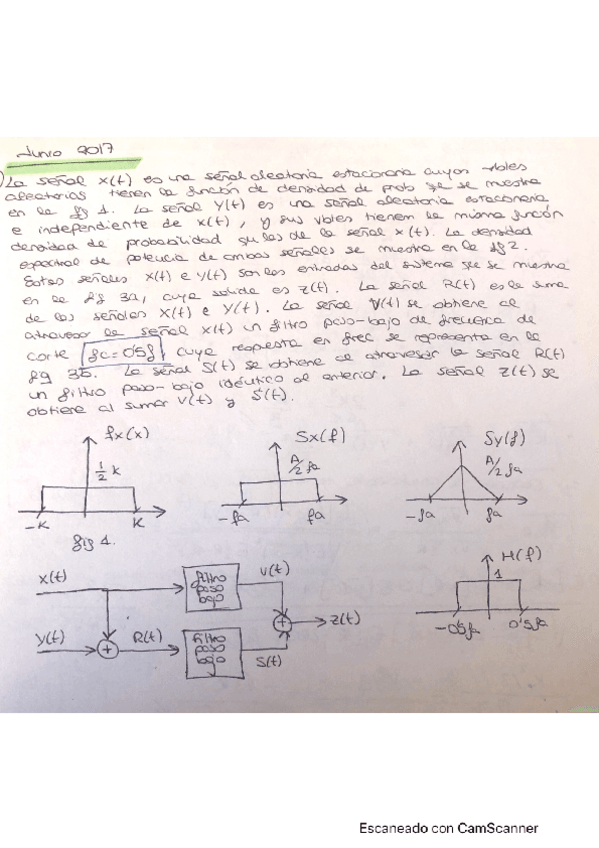 Junio 2017
La señal x(t) es una señal aleatoria estacionaria cuyas vbles
aleatorias tienen la función de densidad de prob que se muestra
en la fig 1. La señal Y(t) es una señal aleatoria estacionaria
e independiente de x(t), y sus vbles tienen la misma función
densidad de probabilidad que las de la señal x(t). La densidad
espectral de potencia de ambas señales se muestra en la fig 2.
Estas señales x(t) e y(t) son las entradas del sistema que se muestra
en la fig 3a, cuya salida es z(t). La señal R(t) es la suma
de las señales x(t) e y(t). La señal V(t) se obtiene al
atravesar la señal x(t) un filtro paso-bajo de frecuencia de
corte fc=0'5f, cuya respuesta en frec se representa en la
fig 3b. La señal S(t) se obtiene al atravesar la señal R(t)
un filtro paso-bajo idéntico al anterior. La señal z(t) se
obtiene al sumar V(t) y S(t).
fx(x) Sx(f) Sy(f)
1/2 k A/2fa A/2fa
-k k -fa fa -fa fa
fig 1.
H(f)
x(t) filtro paso bajo V(t) 1
+ z(t)
y(t) + R(t) filtro paso bajo S(t) -0'5fa 0'5fa
Escaneado con CamScanner